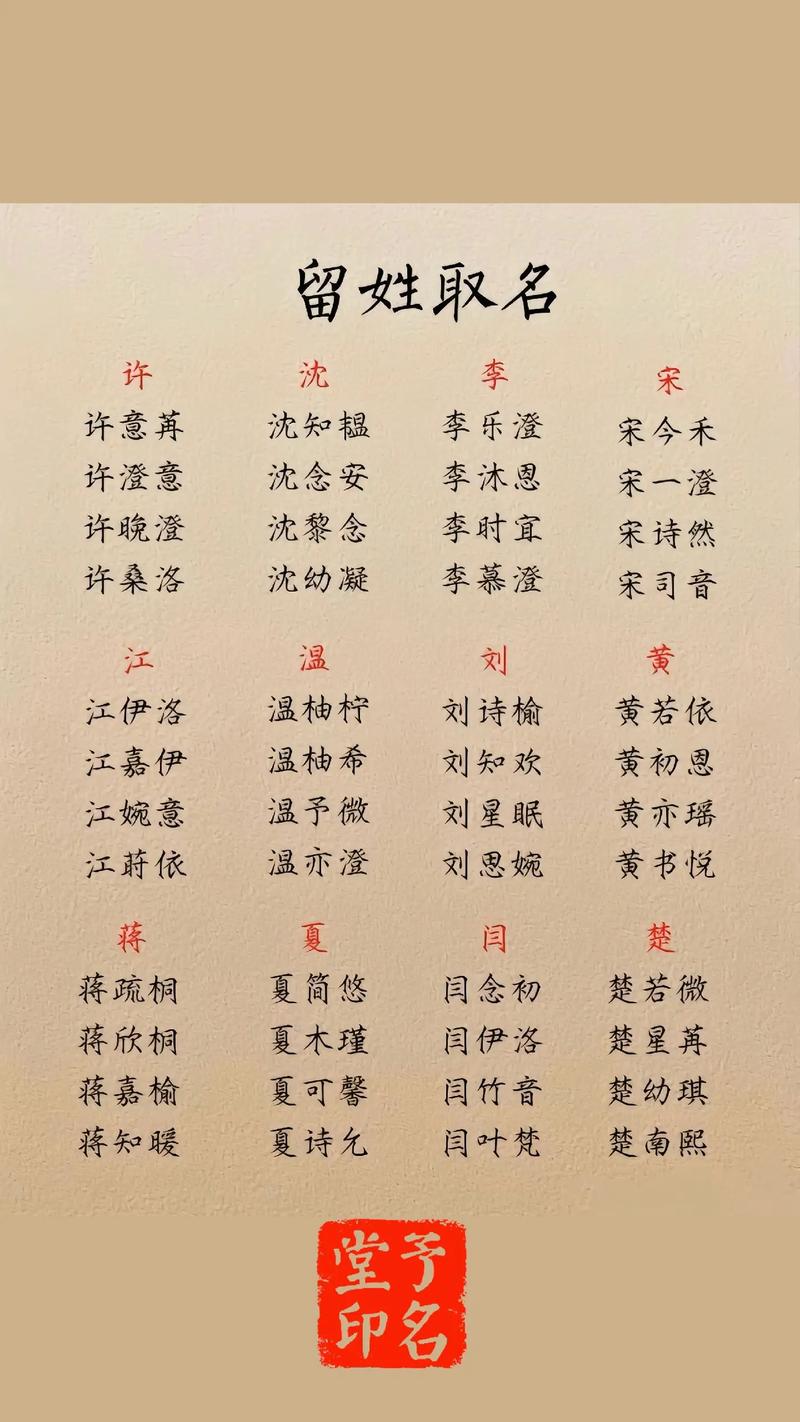 留姓取名
许 沈 李 宋
许意苒 沈知韫 李乐澄 宋今禾
许澄意 沈念安 李沐恩 宋一澄
许晚澄 沈黎念 李时宜 宋诗然
许桑洛 沈幼凝 李慕澄 宋司音
江 温 刘 黄
江伊洛 温柚柠 刘诗榆 黄若依
江嘉伊 温柚希 刘知欢 黄初恩
江婉意 温予微 刘星眠 黄亦瑶
江莳依 温亦澄 刘思婉 黄书悦
蒋 夏 闫 楚
蒋疏桐 夏简悠 闫念初 楚若微
蒋欣桐 夏木瑾 闫伊洛 楚星苒
蒋嘉榆 夏可馨 闫竹音 楚幼琪
蒋知暖 夏诗允 闫叶梵 楚南熙
予名
堂印